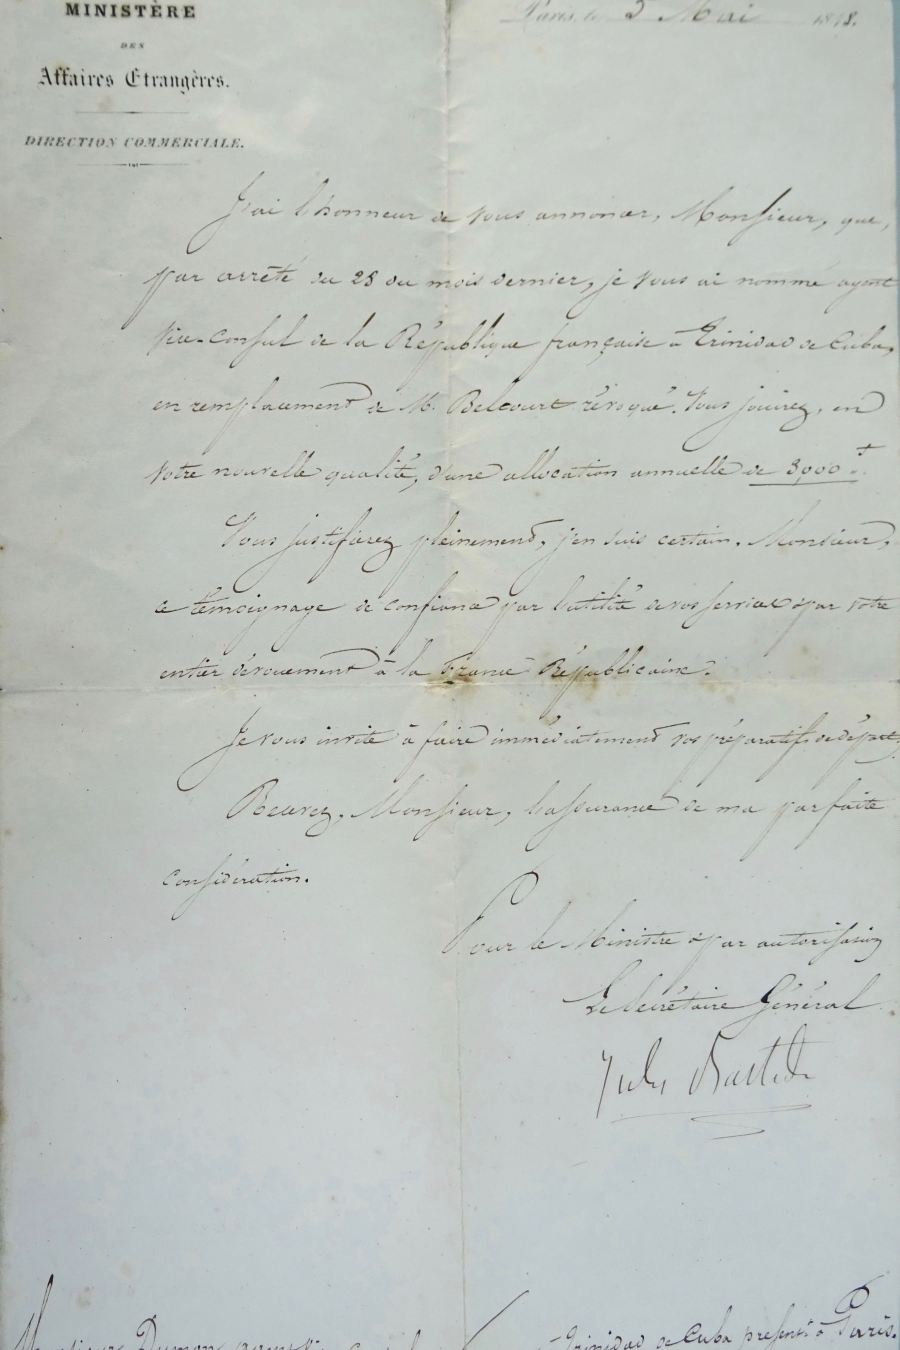 MINISTÈRE
DES
Affaires Étrangères.
DIRECTION COMMERCIALE.
Paris, le 5 Mai 1848.
J'ai l'honneur de vous annoncer, Monsieur, que,
par arrêté du 28 du mois dernier, je vous ai nommé agent
vice-Consul de la République française à Trinidad de Cuba,
en remplacement de M. Belcourt révoqué. Vous jouirez, en
votre nouvelle qualité, d'une allocation annuelle de 3,000 f.
Vous justifierez pleinement, j'en suis certain, Monsieur,
ce témoignage de confiance par l'utilité de vos services & par votre
entier dévouement à la France Républicaine.
Je vous invite à faire immédiatement vos préparatifs de départ.
Recevez, Monsieur, l'assurance de ma parfaite
considération.
Pour le Ministre & par autorisation
Le Secrétaire Général
Jules Bastide
Monsieur Dumon à Trinidad de Cuba présent à Paris.